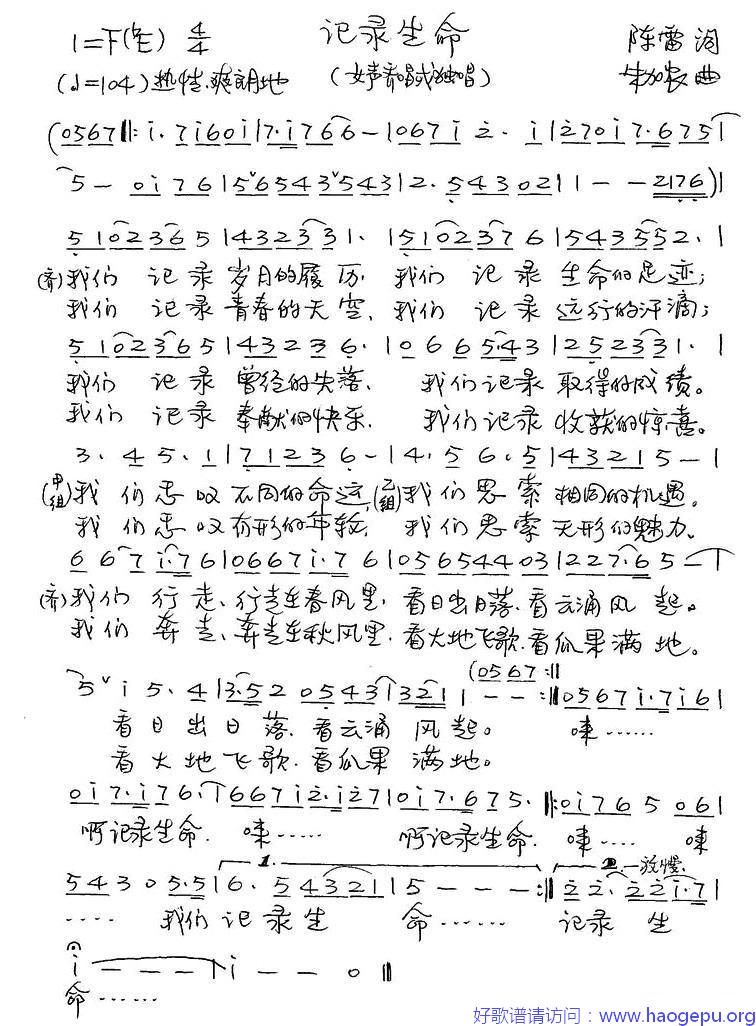 记录生命
1=F(♭E) 4/4
陈雷 词
(♩=104) 热情、爽朗地
(女声齐唱或独唱)
朱加农 曲
(0567 ‖: i. 7i60i | 7.i 766 - | 067i 2. i | 2701 7.675 |
5 - 0i76 | 5ˇ6543ˇ543 | 2. 54302 | 1 - - 2176) |
5102365 | 432331. | 5102376 | 543552. |
(齐)我们 记录岁月的履历, 我们 记录生命的足迹;
我们 记录青春的天空, 我们 记录远行的汗滴;
5102365 | 432236. | 0665.43 | 252331. |
我们 记录曾经的失落, 我们记录取得的成绩。
我们 记录奉献的快乐, 我们记录收获的惊喜。
3. 45. 1 | 71236 - | 4. 56. 5 | 43215 - |
(甲组)我们感叹不同的命运,(乙组)我们思索相同的机遇。
我们感叹有形的年轮, 我们思索无形的魅力。
667i.76 | 0667i.76 | 05654403 | 227.65 - |
(齐)我们行走、行走在春风里,看日出日落、看云涌风起。
我们奔走、奔走在秋风里,看大地飞歌、看瓜果满地。
(0567 :‖
5ˇi5. 4 | 3.520543 | 3211 - - :‖ 0567i.7i6 |
看日出日落、看云涌风起。 唻……
看大地飞歌、看瓜果满地。
0i7.i76. | 667i2.i27 | 0i7.675. ‖: 0i765 06 |
啊记录生命. 唻…… 啊记录生命. 唻…… 唻
1. 2. 放慢
54305.5 | 6. 54321 | 5 - - - :‖ 22. 22i.7 |
…… 我们记录生 命…… 记录生
i - - - | i - - 0 ‖
命……
好歌谱请访问：www.haogepu.org